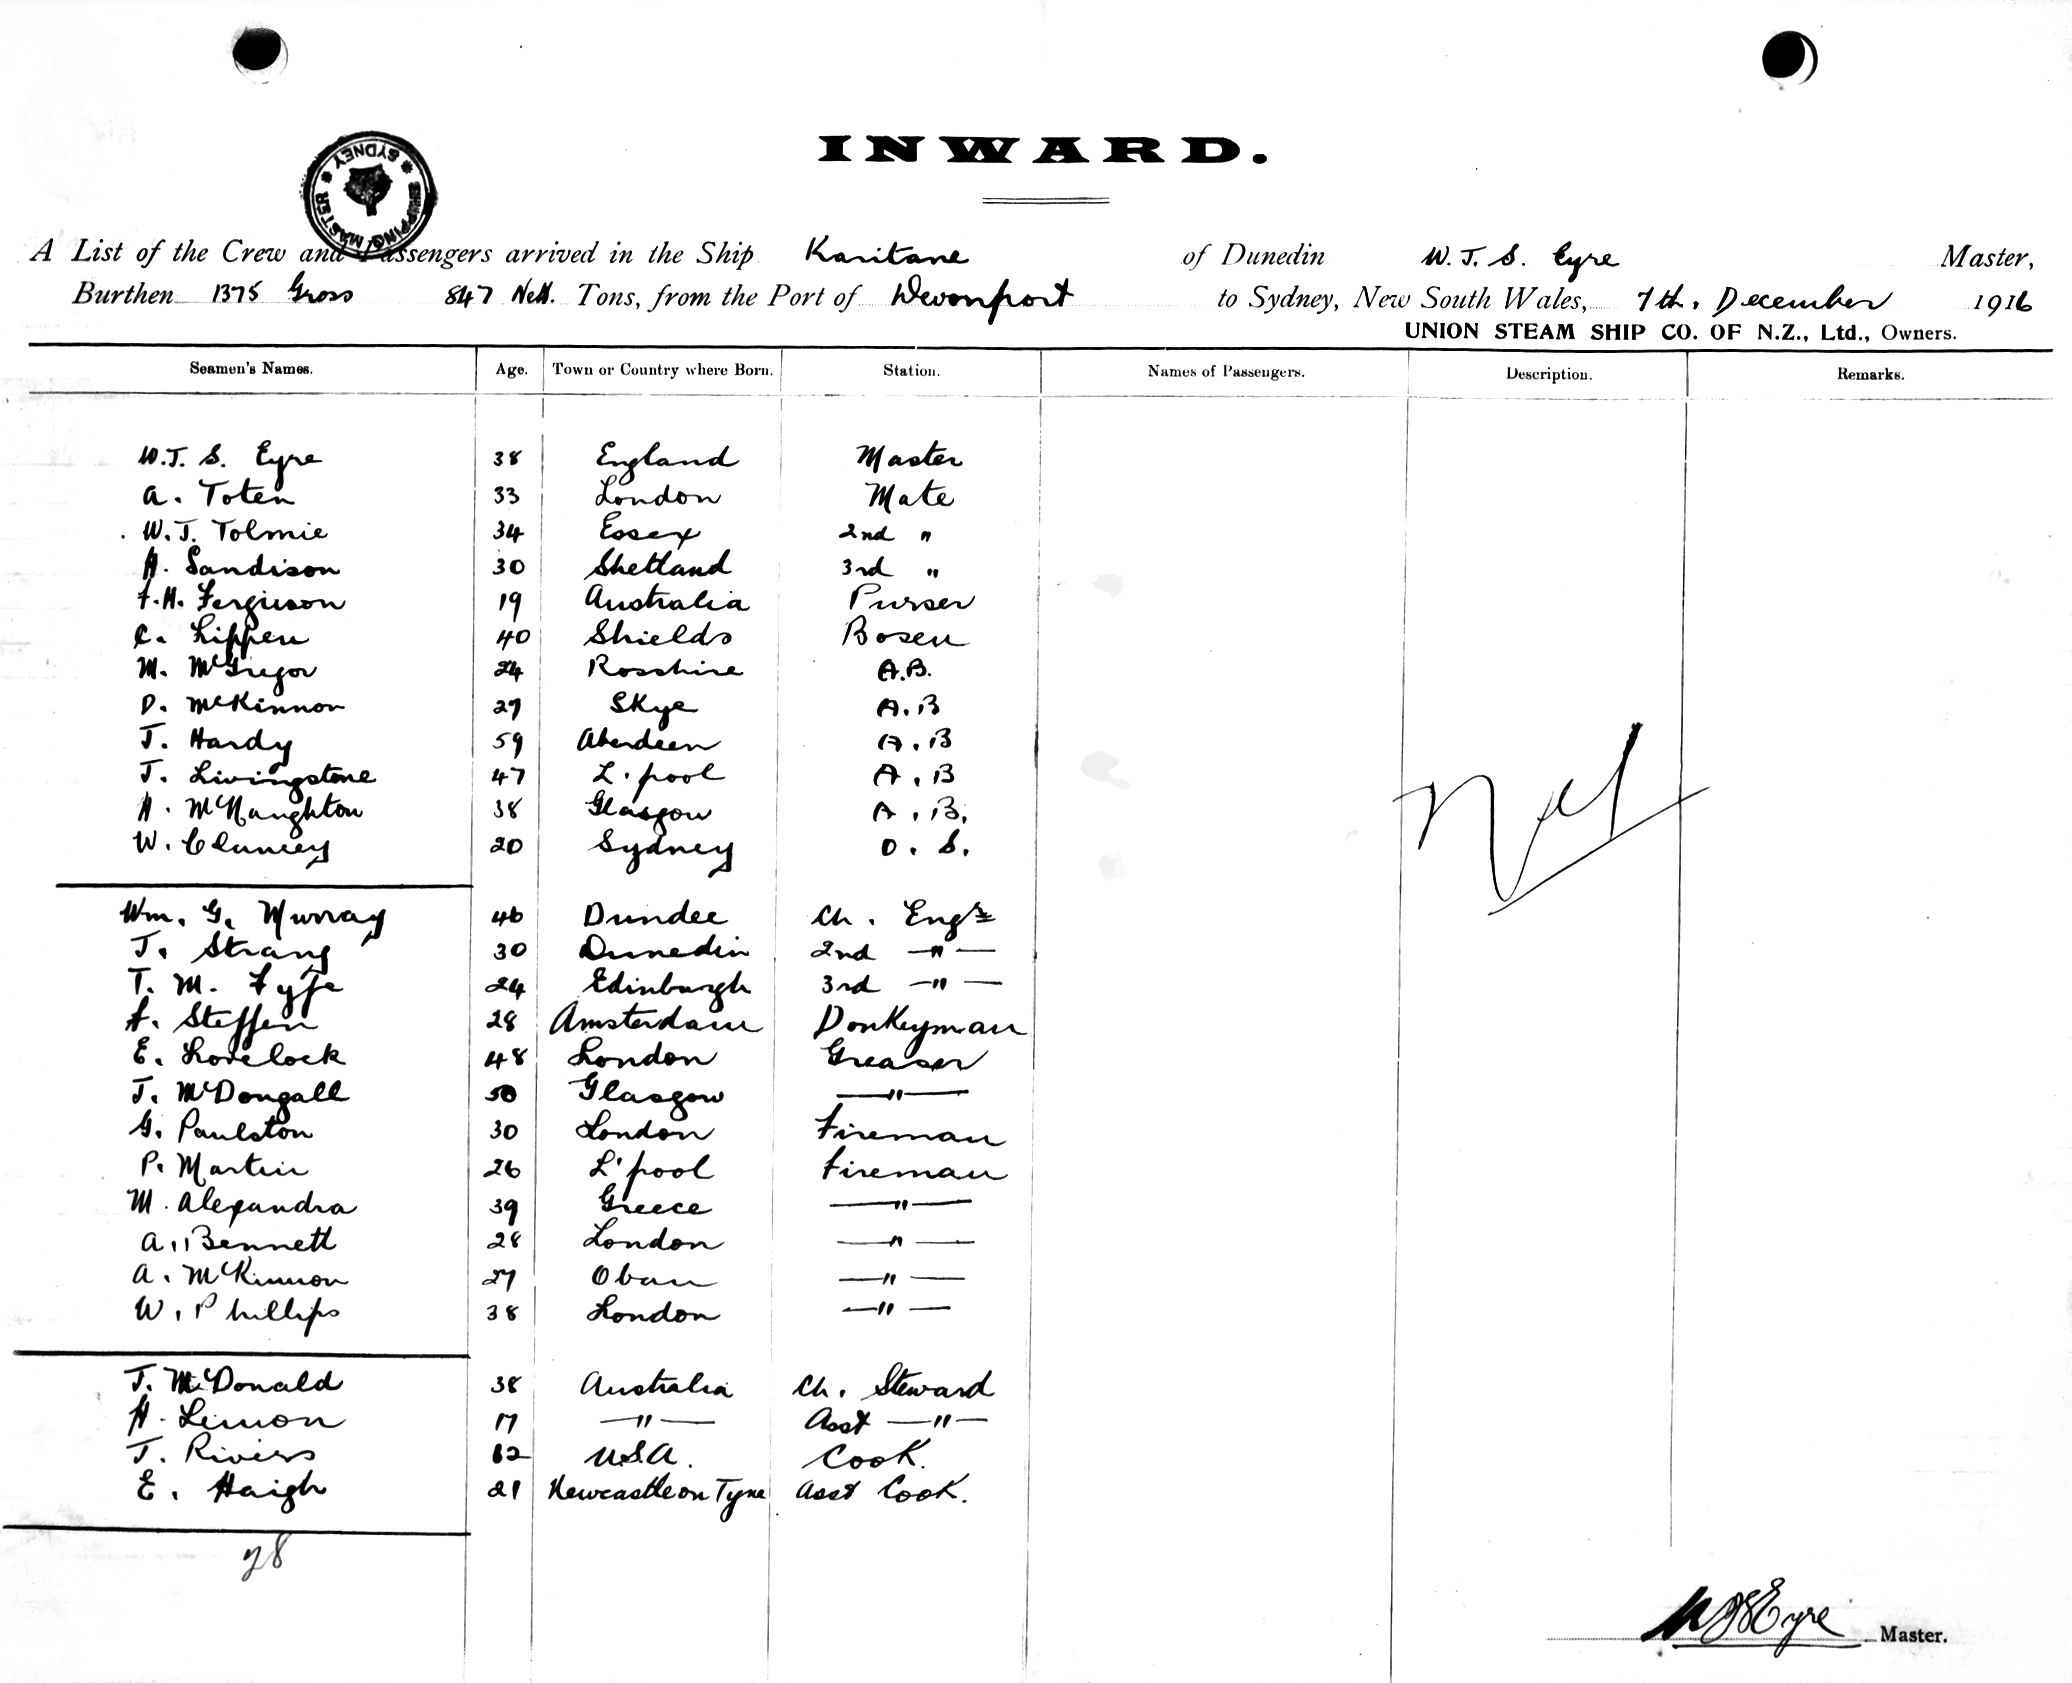 INWARD.
SHIPPING MASTER * SYDNEY *
A List of the Crew and Passengers arrived in the Ship Karitane of Dunedin W. J. S. Eyre Master,
Burthen 1375 Gross 847 Nett. Tons, from the Port of Devonport to Sydney, New South Wales, 7th. December 1916
UNION STEAM SHIP CO. OF N.Z., Ltd., Owners.
Seamen's Names. Age. Town or Country where Born. Station. Names of Passengers. Description. Remarks.
W. J. S. Eyre 38 England Master
A. Toten 33 London Mate
W. J. Tolmie 34 Essex 2nd "
A. Sandison 30 Shetland 3rd "
F. H. Ferguson 19 Australia Purser
C. Lippen 40 Shields Bosen
M. McGregor 24 Rosshire A.B.
D. McKinnon 27 Skye A.B
J. Hardy 59 Aberdeen A.B
J. Livingstone 47 L'pool A.B
A. McNaughton 38 Glasgow A.B.
W. Clancey 20 Sydney O.S.
Nil
Wm. G. Murray 46 Dundee Ch. Engr
J. Strang 30 Dunedin 2nd "
T. M. Fyfe 24 Edinburgh 3rd "
A. Steffen 28 Amsterdam Donkeyman
E. Lovelock 48 London Greaser
J. McDougall 50 Glasgow "
G. Paulston 30 London Fireman
P. Martin 26 L'pool Fireman
M. Alexandra 39 Greece "
A. Bennett 28 London "
A. McKinnon 27 Oban "
W. Phillips 38 London "
J. McDonald 38 Australia Ch. Steward
H. Lemon 17 " Asst "
J. Rivers U.S.A. Cook.
E. Haigh 21 Newcastle on Tyne Asst Cook.
28
W J S Eyre Master.